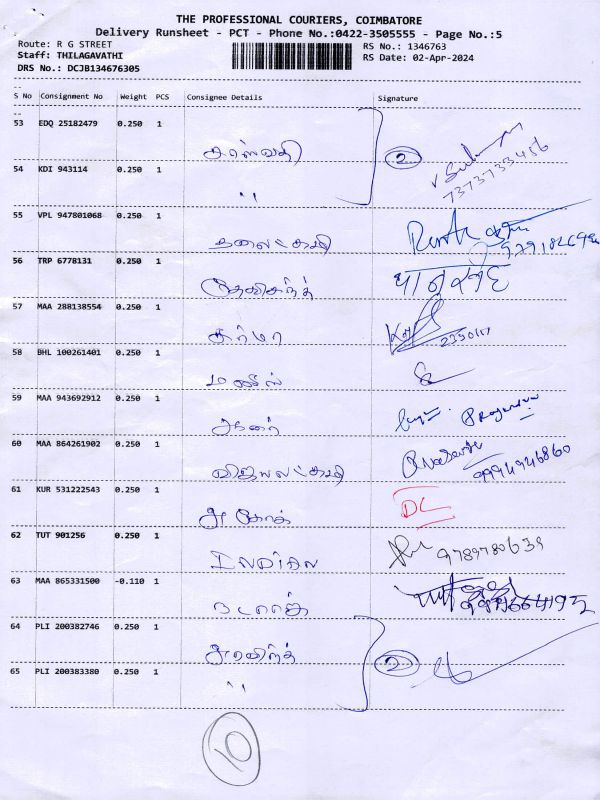 THE PROFESSIONAL COURIERS, COIMBATORE
Delivery Runsheet - PCT - Phone No.:0422-3505555 - Page No.:5
Route: R G STREET
RS No.: 1346763
Staff: THILAGAVATHI
RS Date: 02-Apr-2024
DRS No.: DCJB134676305
S No Consignment No Weight PCS Consignee Details Signature
53 EDQ 25182479 0.250 1
சரஸ்வதி 2
54 KDI 943114 0.250 1
" 7373733456
55 VPL 947801068 0.250 1
56 TRP 6778131 0.250 1
57 MAA 288138554 0.250 1
58 BHL 100261401 0.250 1
59 MAA 943692912 0.250 1
60 MAA 864261902 0.250 1
விஜயலட்சுமி 9994946860
61 KUR 531222543 0.250 1
அசோக் DC
62 TUT 901256 0.250 1
9789780639
63 MAA 865331500 -0.110 1
நடராஜ்
64 PLI 200382746 0.250 1
அரவிந்த் 2
65 PLI 200383380 0.250 1
"
10